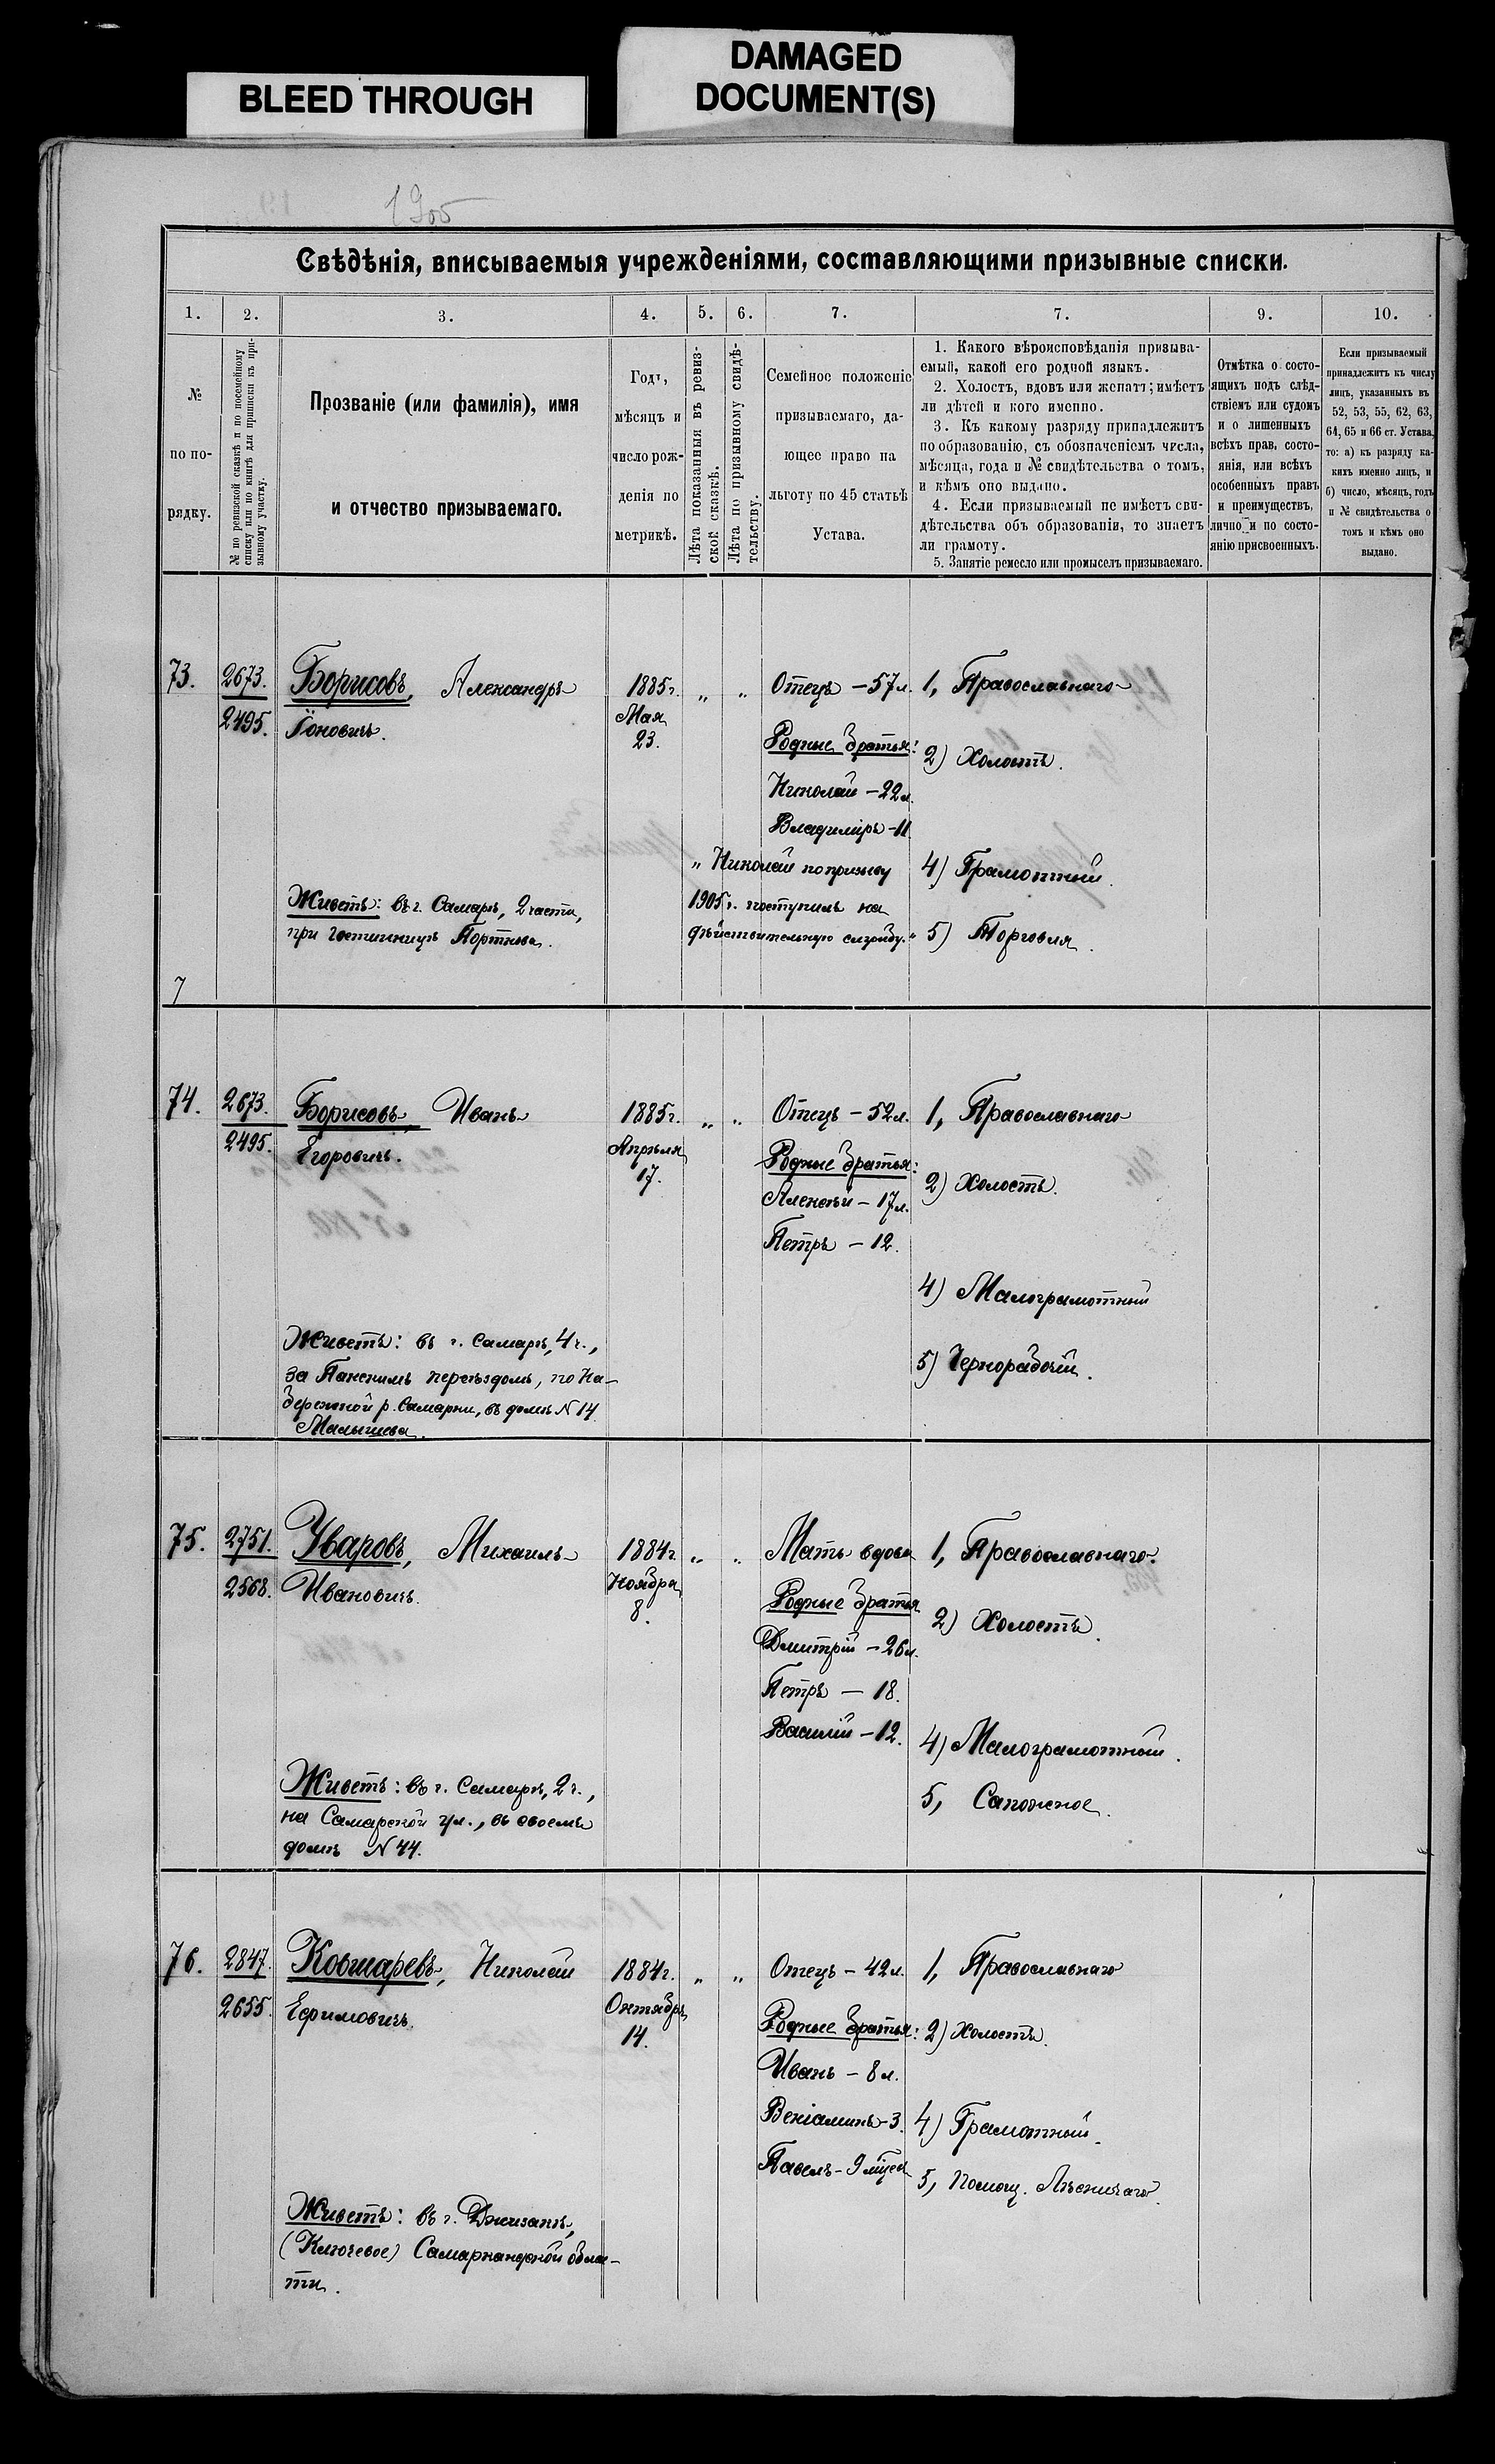 BLEED THROUGH
DAMAGED
DOCUMENT(S)
1905
Свѣдѣнія, вписываемыя учрежденіями, составляющими призывные списки.
1. 2. 3. 4. 5. 6. 7. 7. 9. 10.
№
по по-
рядку.
№ по ревизской сказкѣ и по посемейному
списку или по книгѣ для приписки къ при-
зывному участку.
Прозваніе (или фамилія), имя
и отчество призываемаго.
Годъ,
мѣсяцъ и
число рож-
денія по
метрикѣ.
Лѣта показанныя въ ревиз-
ской сказкѣ.
Лѣта по призывному свидѣ-
тельству.
Семейное положеніе
призываемаго, да-
ющее право на
льготу по 45 статьѣ
Устава.
1. Какого вѣроисповѣданія призыва-
емый, какой его родной языкъ.
2. Холостъ, вдовъ или женатъ; имѣетъ
ли дѣтей и кого именно.
3. Къ какому разряду принадлежитъ
по образованію, съ обозначеніемъ числа,
мѣсяца, года и № свидѣтельства о томъ,
и кѣмъ оно выдано.
4. Если призываемый не имѣетъ сви-
дѣтельства объ образованіи, то знаетъ
ли грамоту.
5. Занятіе ремесло или промыселъ призываемаго.
Отмѣтка о состо-
ящихъ подъ слѣд-
ствіемъ или судомъ
и о лишенныхъ
всѣхъ прав. состо-
янія, или всѣхъ
особенныхъ правъ
и преимуществъ,
лично и по состо-
янію присвоенныхъ.
Если призываемый
принадлежитъ къ числу
лицъ, указанныхъ въ
52, 53, 55, 62, 63,
64, 65 и 66 ст. Устава,
то: а) къ разряду ка-
кихъ именно лицъ, и
б) число, мѣсяцъ, годъ
и № свидѣтельства о
томъ и кѣмъ оно
выдано.
73.
2673.
2495.
Борисовъ, Александръ
Іоновичъ.
Живетъ: въ г. Самарѣ, 2 части,
при гостинницѣ Портнова.
1885 г.
Мая
23.
„ „
Отецъ – 57 л.
Родные братья:
Николай – 22 л.
Владиміръ – 11
„Николай по призыву
1905 г. поступилъ на
дѣйствительную службу.“
1, Православнаго
2) Холостъ.
4) Грамотный.
5) Торговля.
7
74.
2673.
2495.
Борисовъ, Иванъ
Егоровичъ.
Живетъ: въ г. Самарѣ, 4 ч.,
за Панскимъ переѣздомъ, по На-
бережной р. Самарки, въ домѣ N 14
Малышева.
1885 г.
Апрѣля
17.
„ „
Отецъ – 52 л.
Родные братья:
Алексѣй – 17 л.
Петръ – 12.
1, Православнаго
2) Холостъ.
4) Малограмотный
5) Чернорабочій.
75.
2751.
2568.
Уваровъ, Михаилъ
Ивановичъ.
Живетъ: въ г. Самарѣ, 2 ч.,
на Самарской ул., въ своемъ
домѣ N 44.
1884 г.
Ноября
8.
„ „
Мать вдова
Родные братья
Дмитрій – 26 л.
Петръ – 18.
Василій – 12.
1, Православнаго.
2) Холостъ.
4) Малограмотный.
5, Сапожное.
76.
2847.
2655.
Ковшаревъ, Николай
Ефимовичъ.
Живетъ: въ г. Джизакѣ,
(Ключевое) Самаркандской облас-
ти.
1884 г.
Октября
14.
„ „
Отецъ – 42 л.
Родные братья:
Иванъ – 8 л.
Веніаминъ – 3.
Павелъ – 9 мѣсец
1, Православнаго
2) Холостъ.
4) Грамотный.
5, Помощ. Лѣсничаго.